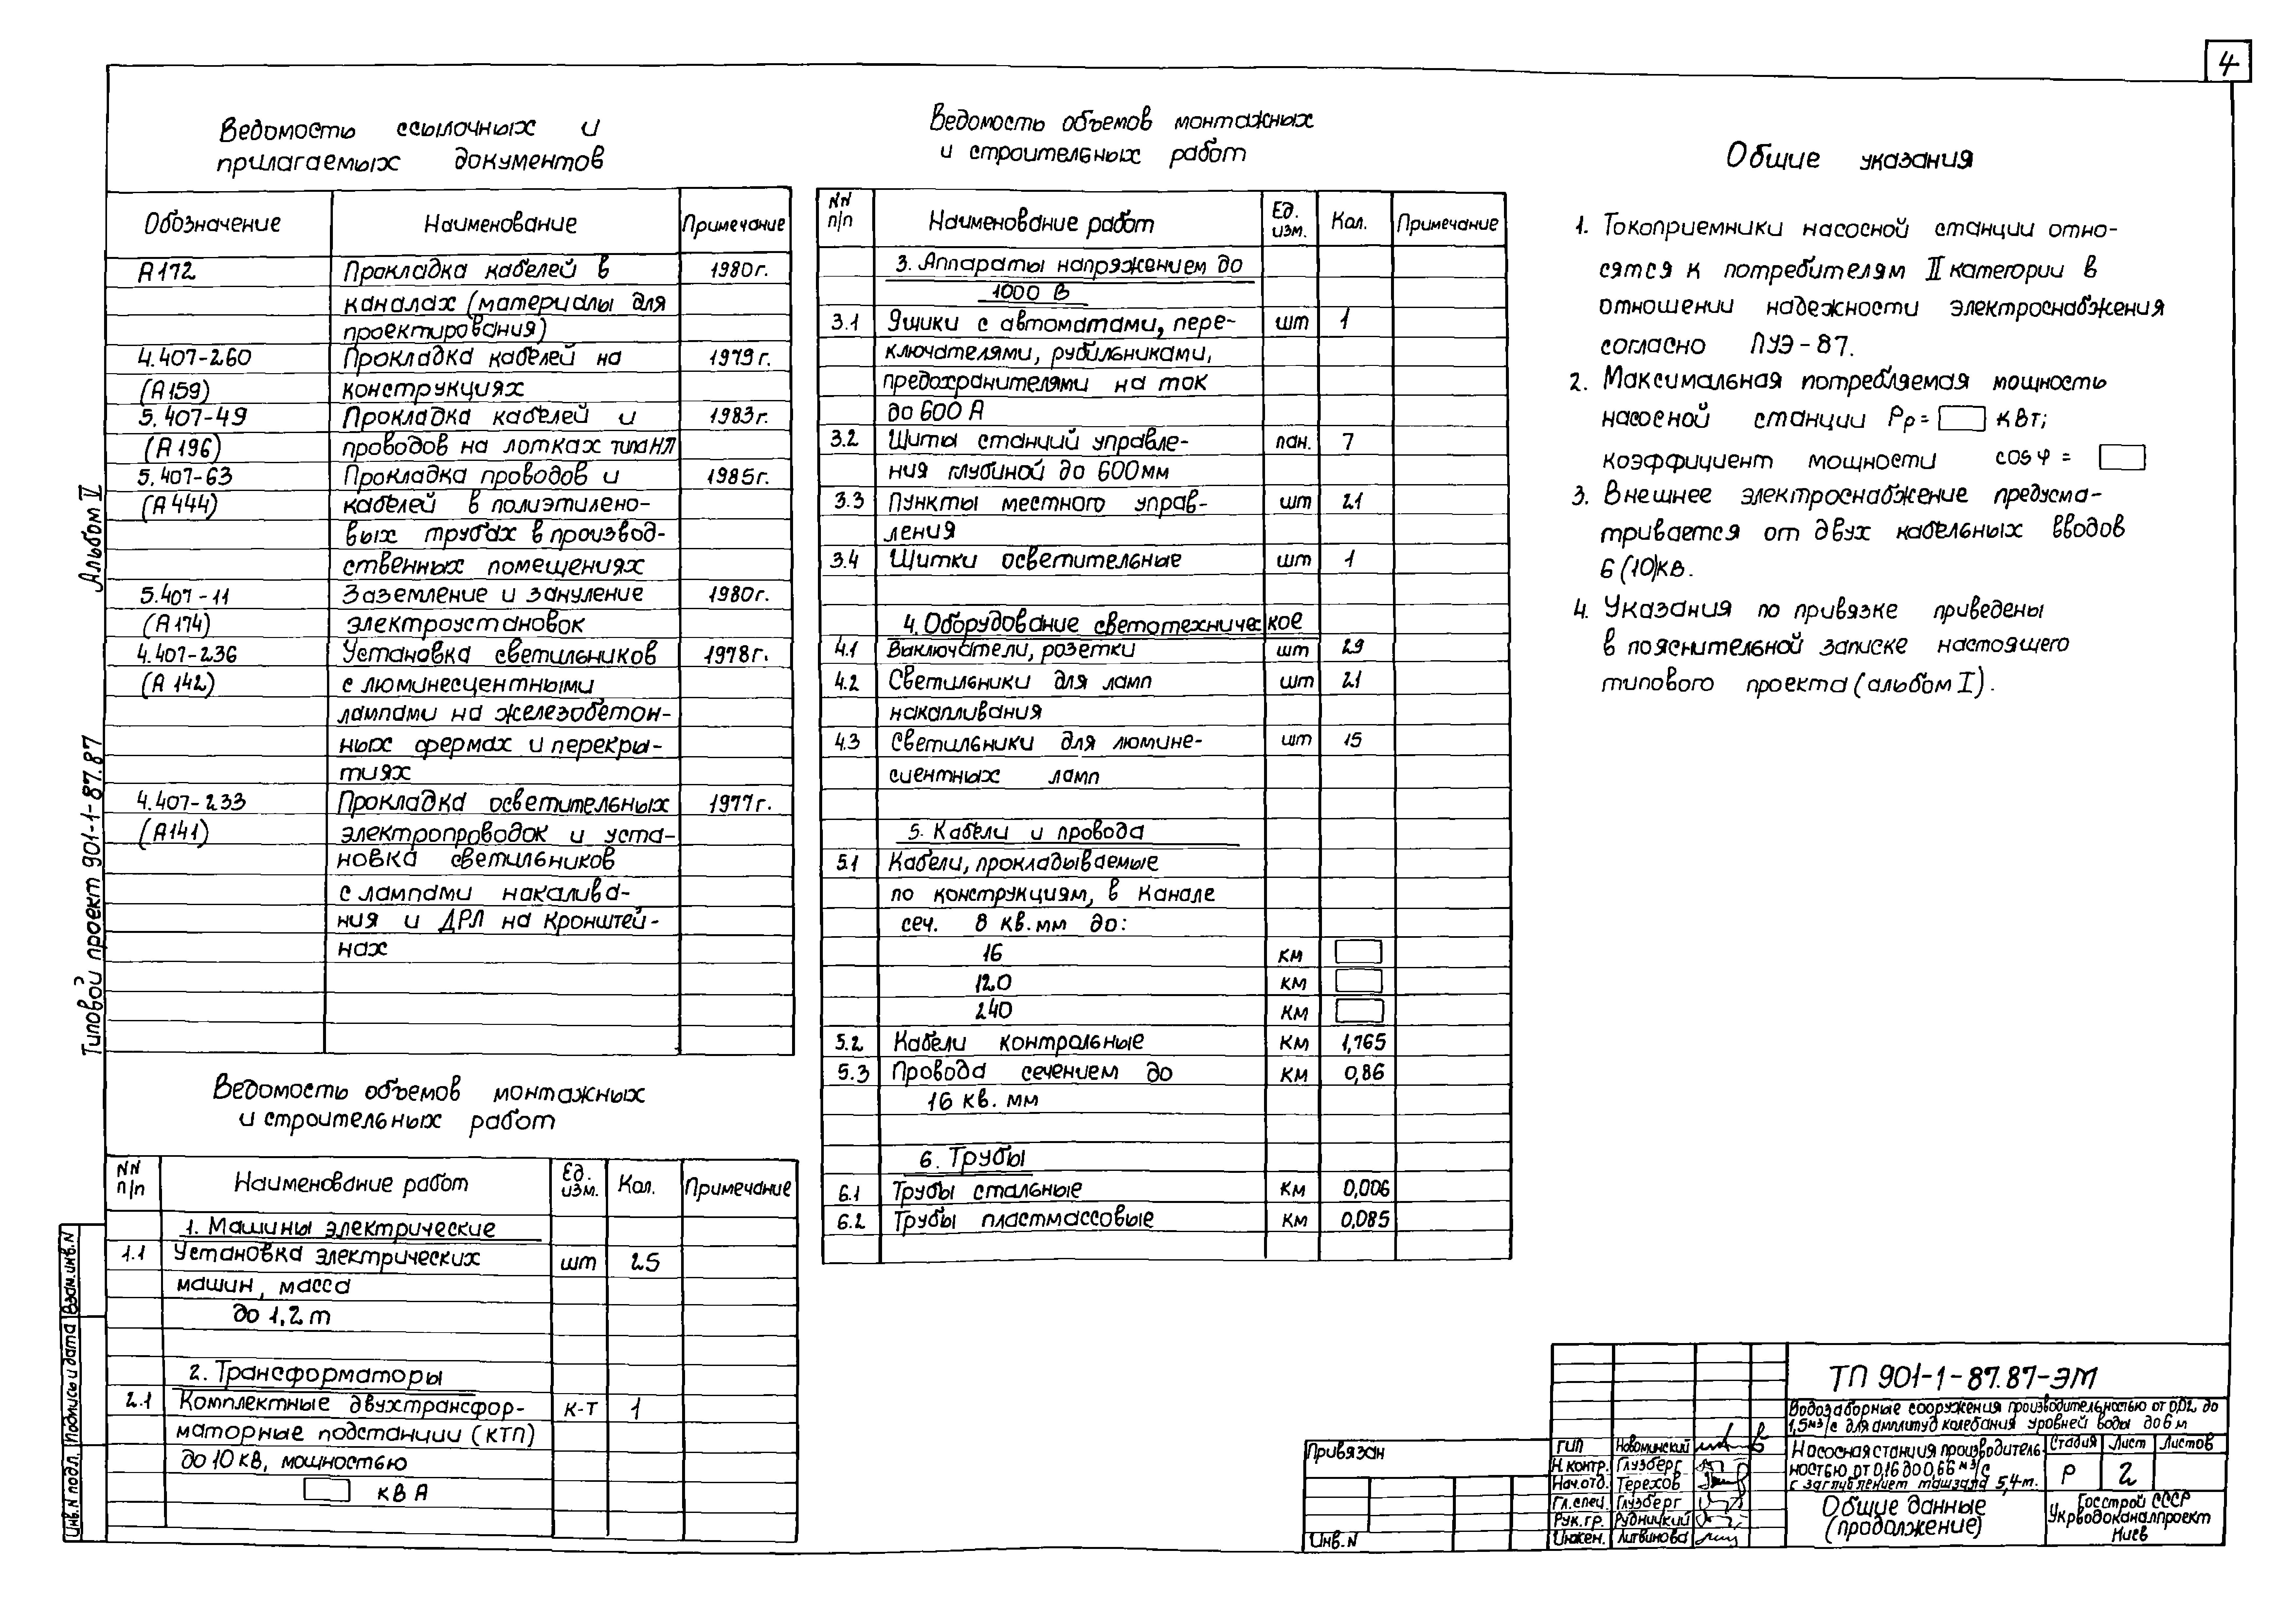 4
Ведомость ссылочных и
прилагаемых документов
Обозначение Наименование Примечание
А172 Прокладка кабелей в 1980г.
каналах (материалы для
проектирования)
4.407-260 Прокладка кабелей на 1979г.
(А159) конструкциях
5.407-49 Прокладка кабелей и 1983г.
(А196) проводов на лотках типа НЛ
5.407-63 Прокладка проводов и 1985г.
(А444) кабелей в полиэтилено-
вых трубах в производ-
ственных помещениях
5.407-11 Заземление и зануление 1980г.
(А174) электроустановок
4.407-236 Установка светильников 1978г.
(А142) с люминесцентными
лампами на железобетон-
ных фермах и перекры-
тиях
4.407-233 Прокладка осветительных 1977г.
(А141) электропроводок и уста-
новка светильников
с лампами накалива-
ния и ДРЛ на кронштей-
нах
Ведомость объемов монтажных
и строительных работ
NN п/п Наименование работ Ед. изм. Кол. Примечание
1. Машины электрические
1.1 Установка электрических шт 25
машин, масса
до 1,2 т
2. Трансформаторы
2.1 Комплектные двухтрансфор- к-т 1
маторные подстанции (КТП)
до 10 кв, мощностью
кВА
Ведомость объемов монтажных
и строительных работ
NN п/п Наименование работ Ед. изм. Кол. Примечание
3. Аппараты напряжением до
1000 В
3.1 Ящики с автоматами, пере- шт 1
ключателями, рубильниками,
предохранителями на ток
до 600 А
3.2 Щиты станций управле- пан. 7
ния глубиной до 600мм
3.3 Пункты местного управ- шт 21
ления
3.4 Щитки осветительные шт 1
4. Оборудование светотехническое
4.1 Выключатели, розетки шт 29
4.2 Светильники для ламп шт 21
накапливания
4.3 Светильники для люмине- шт 15
сцентных ламп
5. Кабели и провода
5.1 Кабели, прокладываемые
по конструкциям, в канале
сеч. в кв.мм до:
16 км
120 км
240 км
5.2 Кабели контрольные км 1,765
5.3 Провода сечением до км 0,86
16 кв. мм
6. Трубы
6.1 Трубы стальные км 0,006
6.2 Трубы пластмассовые км 0,085
Общие указания
1. Токоприемники насосной станции отно-
сятся к потребителям II категории в
отношении надежности электроснабжения
согласно ПУЭ-87.
2. Максимальная потребляемая мощность
насосной станции Рр= кВт;
коэффициент мощности cosφ =
3. Внешнее электроснабжение предусма-
тривается от двух кабельных вводов
6(10)кв.
4. Указания по привязке приведены
в пояснительной записке настоящего
типового проекта (альбом I).
Альбом V
Типовой проект 901-1-87.87
Взам.инв.N
Подпись и дата
Инв.N подл.
Привязан
Инв.N
ТП 901-1-87.87-ЭМ
Водозаборные сооружения производительностью от 0,02 до
1,5м³/с для амплитуд колебания уровней воды до 6 м
ГИП Новоминский
Н.контр. Глузберг
Нач.отд. Терехов
Гл.спец. Глузберг
Рук.гр. Рудницкий
Инжен. Литвинова
Насосная станция производитель-
ностью от 0,16 до 0,66 м³/с
с заглублением машзала 5,4 м.
Стадия Лист Листов
Р 2
Общие данные
(продолжение)
Госстрой СССР
Укрводоканалпроект
Киев